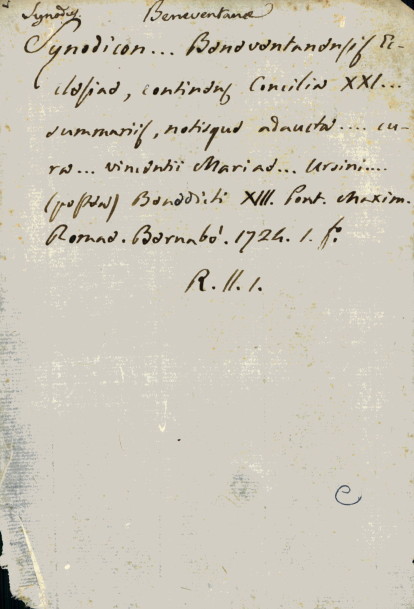 Synodus Beneventana
Synodicon... Beneventanensis Ec-
clesiae, continens Concilia XXI...
summariis, notisque adaucta.... cu-
ra... vincentii Mariae... Ursini....
(postea) Benedicti XIII. Pont. Maxim.
Romae. Bernabó. 1724. 1. fo.
R. II. 1.